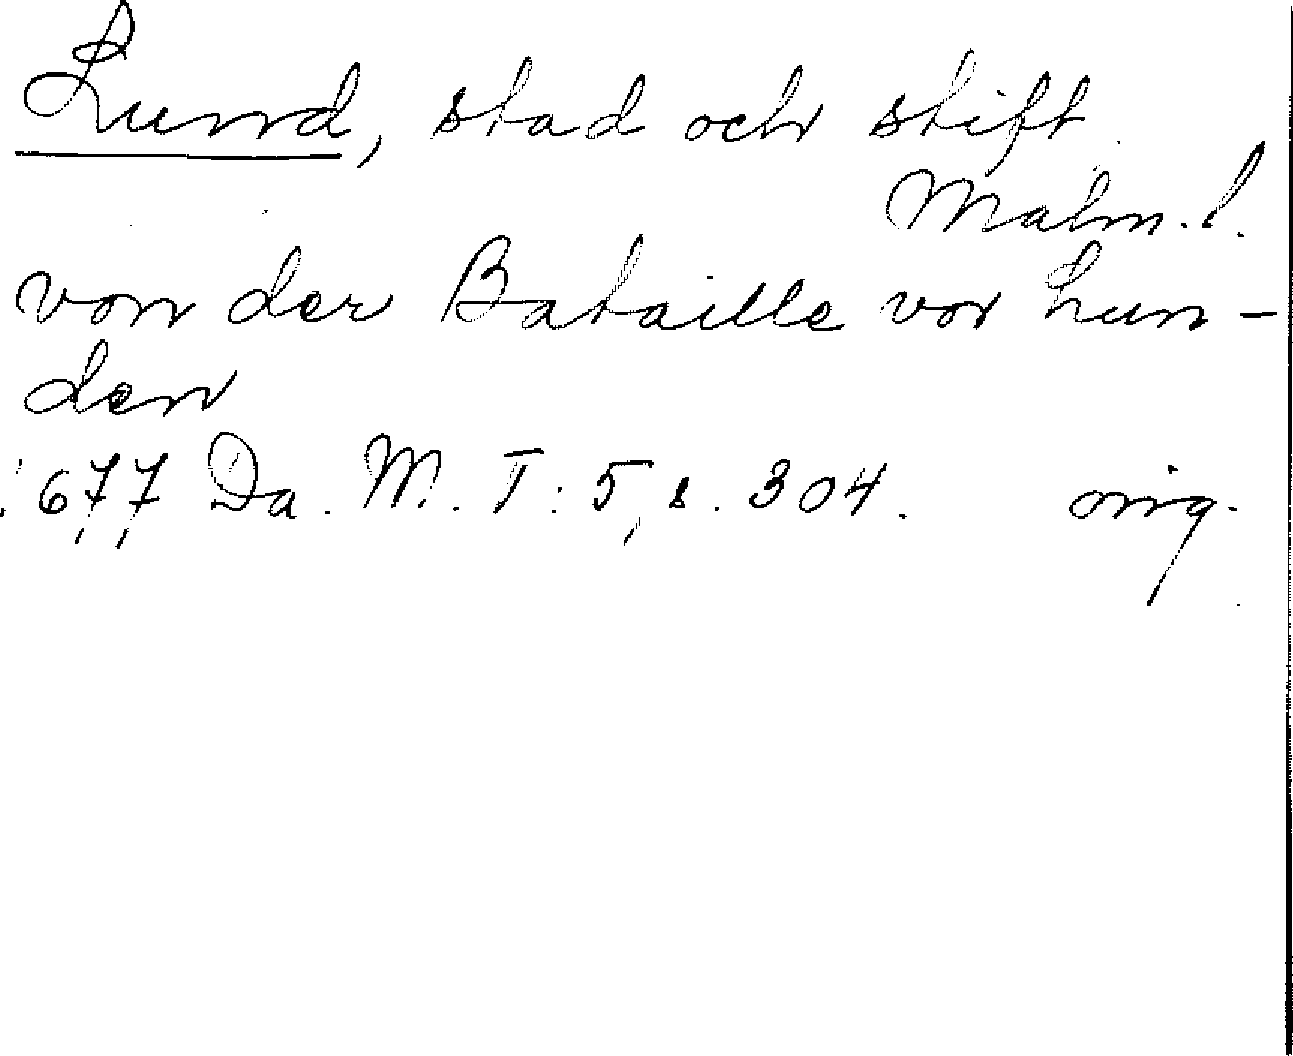 Lund, stad och stift
Malm. l.
von der Bataille vor Lun-
den
1677 Da. M. T: 5, s. 304. orig.